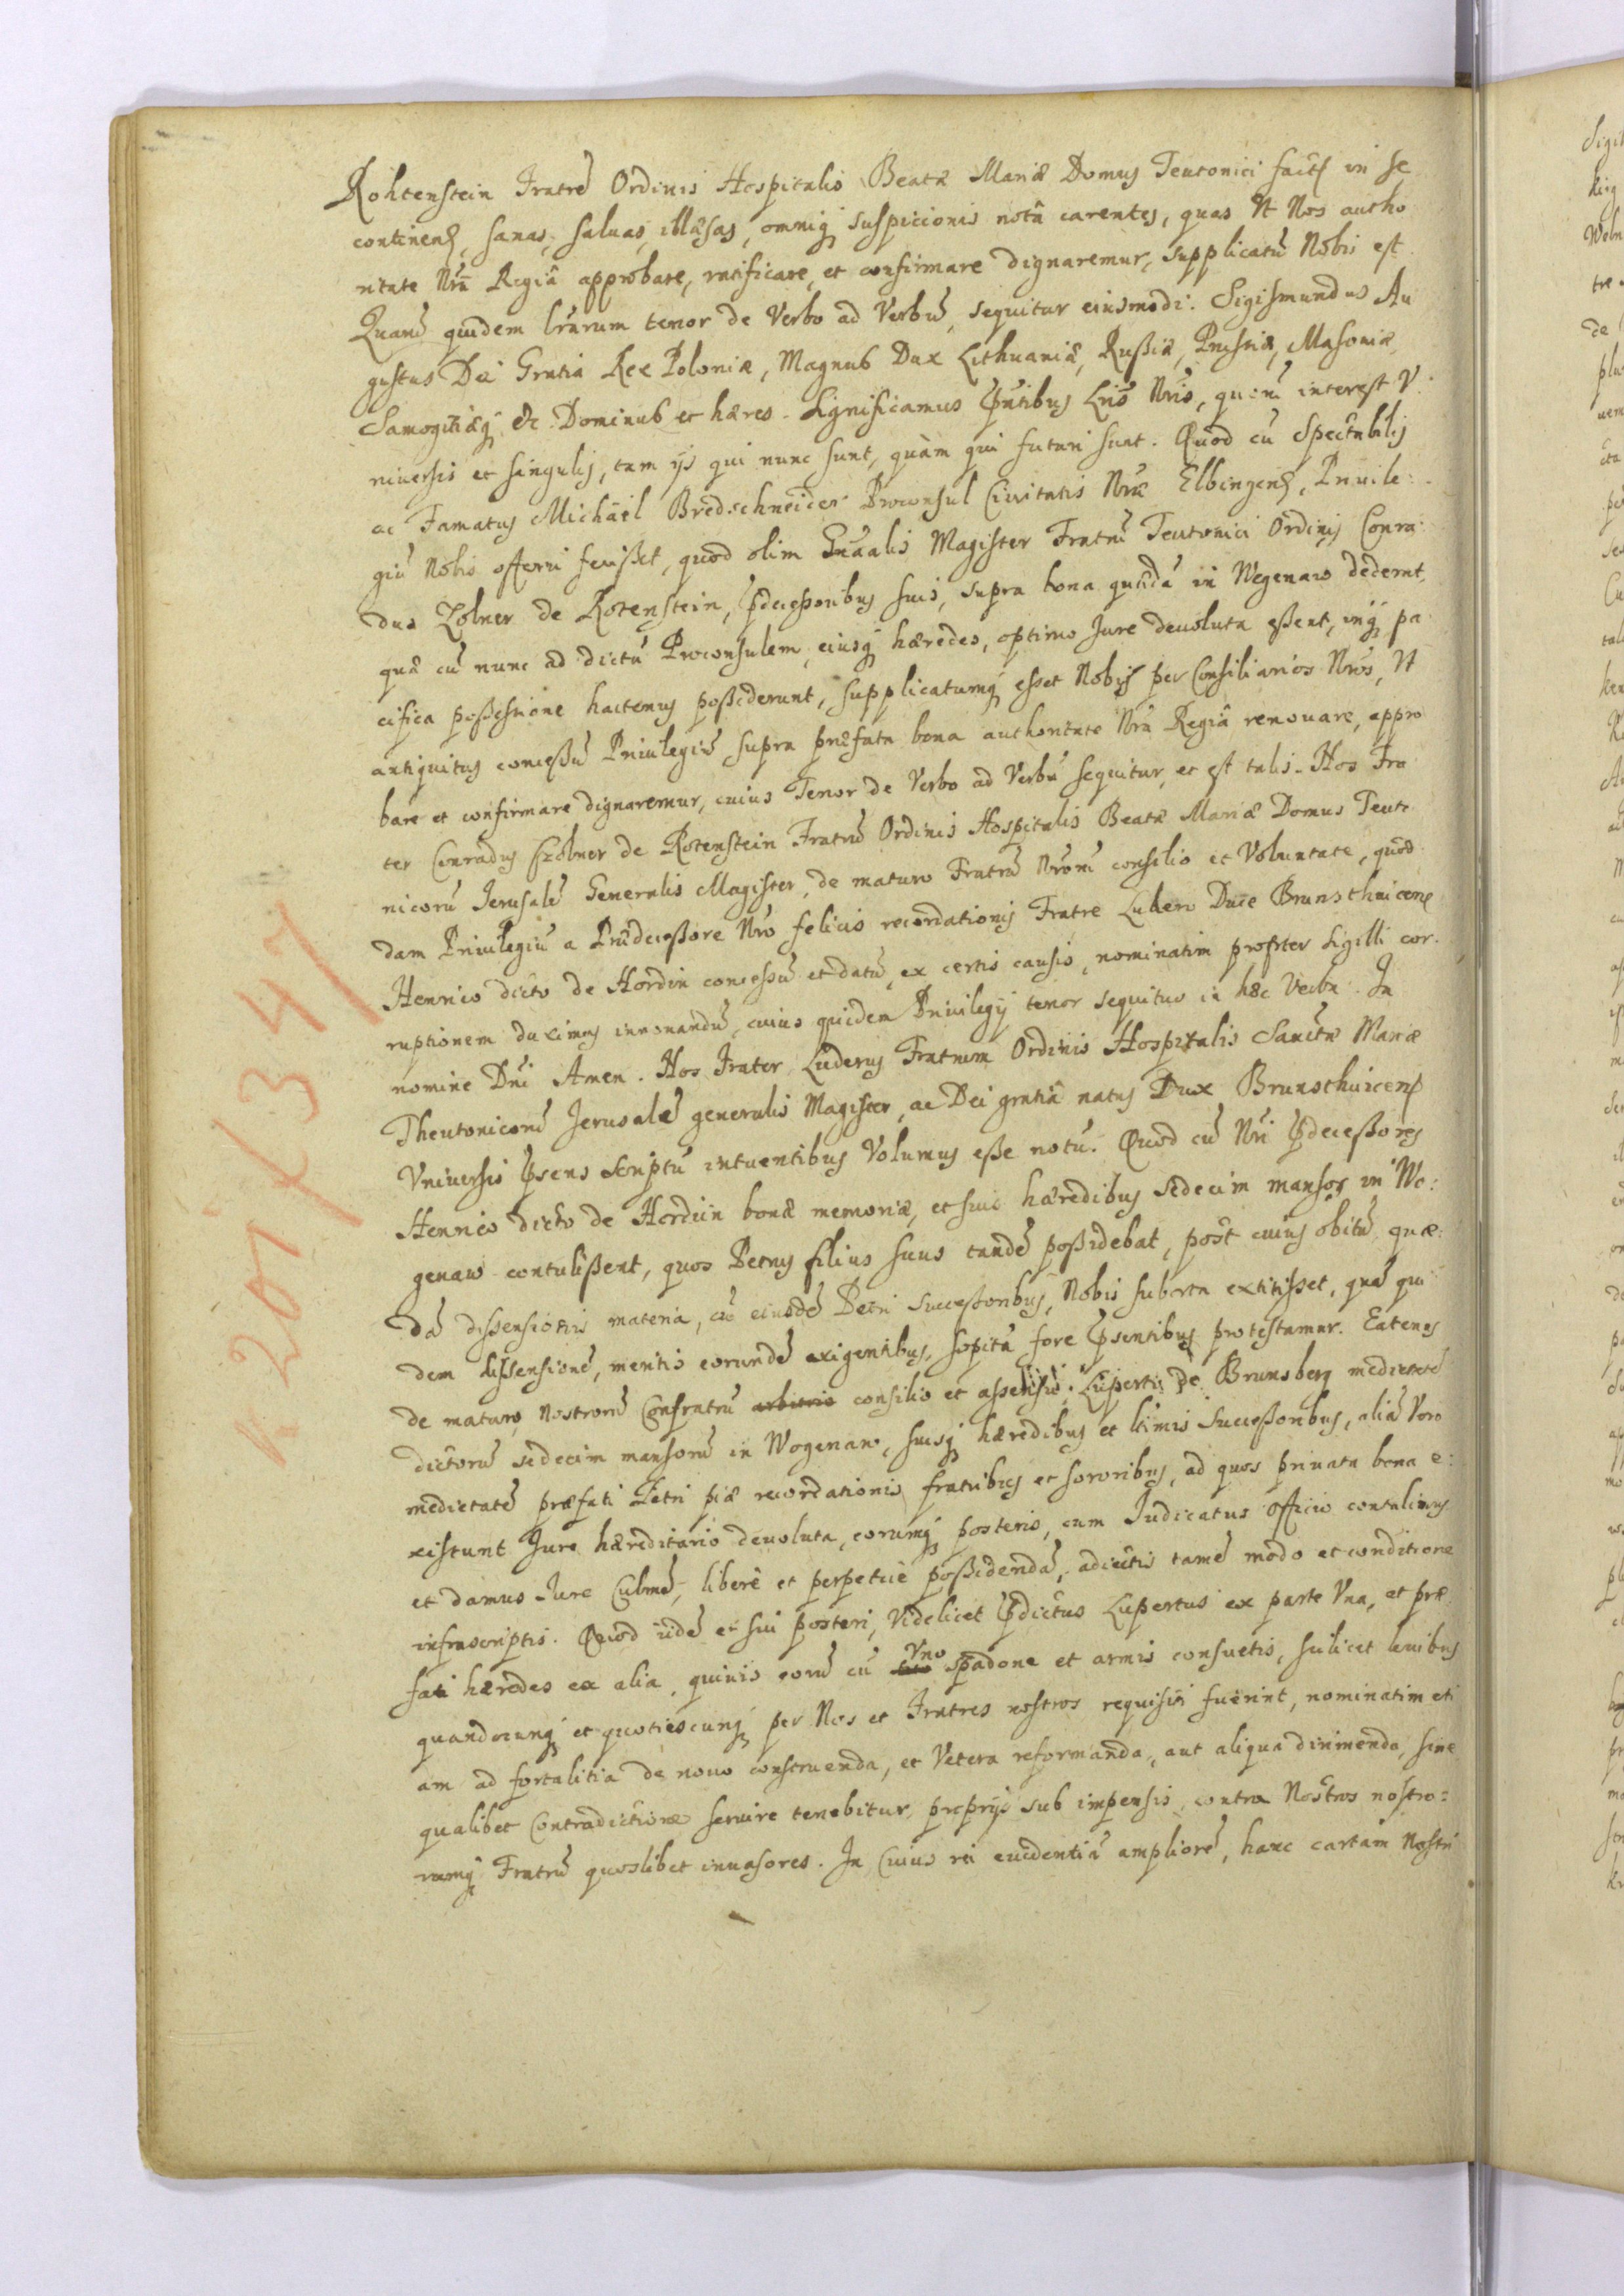 Rohtenstein Fratrẽ Ordinis Hospitalis Beatæ Mariæ Domus Teutonici fact in se
continen, sanas, saluas, illæsas, omniq suspicionis notâ carentes, quas Vt Nos autho
ritate Nrã Regiâ approbare, ratificare, et confirmare dignaremur, supplicatũ Nobis est
Quarũ quidem lrãrum tenor de Verbo ad Verbũ, sequitur eiusmodi: Sigismundus Au
gustus Dei Gratia Rex Poloniæ, Magnus Dux Lithuaniæ, Rußiæ, Prussiæ, Masoniæ
Samogitiæq &c. Dominus et hæres. Significamus Pñtibus Lris Nris, quorũ interest V:
niuersis et singulis, tam ijs qui nunc sunt, quàm qui futuri sunt. Quod cũ Spectabilis
ac Famatus Michäel Bredschneider Proconsul Ciuitatis Nræ Elbingen, Priuile:
giũ Nobis offerri fecißet, quod olim Gñãalis Magister Fratrũ Teutonici Ordinis Conra:
dus Zolner de Rotenstein, Pdeceßoribus suis, supra bona quædã in Wegenaw dederat,
quæ cũ nunc ad dictũ Proconsulem, eiusq hæredes, optimo Jure deuoluta eßent, inq pa
cifica poßessione hactenus poßederunt, supplicatumq esset Nobis per Consiliarios Nros, Vt
antiquitus conceßũ Priuilegiũ supra præfata bona authoritate Nrã Regiâ renouare, appro
bare et confirmare dignaremur, cuius Tenor de Verbo ad Verbũ sequitur, et est talis. Nos Fra
ter Conradus Czolner de Rotenstein Fratrũ Ordinis Hospitalis Beatæ Mariæ Domus Teuto
nicorũ Jerusalẽ Generalis Magister, de maturo Fratrũ Nrorũ consilio et Voluntate, quod
dam Priuilegiũ a Prædeceßore Nro felicis recordationis Fratre Ludero Duce Brunschuicen
Henrico dicto de Hordin concessũ et datũ, ex certis causis, nominatim propter Sigilli cor.
ruptionem duximus innouandũ, cuius quidem Priuilegij tenor sequitur in hæc Verba. In
nomine Dni Amen. Nos Frater Luderus Fratrum Ordinis Hospitalis Sanctæ Mariæ
Theutonicorũ Jerusalẽ generalis Magister, ac Dei gratiâ natus Dux Brunschuicen
Vniuersis Psens Scriptũ intuentibus Volumus eße notũ. Quod cũ Nri Pdeceßores
Henrico dicto de Horduin bonæ memoriæ, et suis hæredibus sedecim mansos in Wo:
genaw contulißent, quos Petrus filius suus tandẽ poßidebat, post cuius obitũ quæ:
dã dissensionis materia, cũ eiusdẽ Petri Succeßoribus, Nobis suborta extitisset, quã qui
dem dissensionẽ, meritis eorundẽ exigentibus, sopitã fore Psentibus protestamur. Eatenus
de maturo, nostrorũ Confratrũ arbitrio consilio et assensu. Luperti de Brunsberg medietatẽ
dictorũ sedecim mansorũ in Wogenaw, suisq hæredibus et ltimis Succeßoribus, aliã Vero
medietatẽ præfati Petri piæ recordationis fratribus et sororibus, ad quos priuata bona e:
xistunt Jure hæreditario deuoluta, eorumq posteris, cum Judicatus officio contulimus
et damus Jure Culmẽ, liberè et perpetuè poßidendã, adiectis tamẽ modo et conditione
infrascriptis. Quod iidẽ et sui posteri, Videlicet Pdictus Lupertus ex parte Vna, et præ
fati hæredes ex alia, quiuis eorũ cũ Vno spadone et armis consuetis, scilicet leuibus
quandocunq et quotiescunq per Nos et Fratres nostros requisiti fuerint, nominatim eti
am ad fortalitia de nouo construenda, et Vetera reformanda, aut aliqua dirimenda, sine
qualibet Contradictione seruire tenebitur proprijs sub impensis, contra Nostros nostro:
rumq Fratrũ quoslibet inuasores. In Cuius rei euidentiã ampliorẽ, hanc cartam Nostri
R 207/347